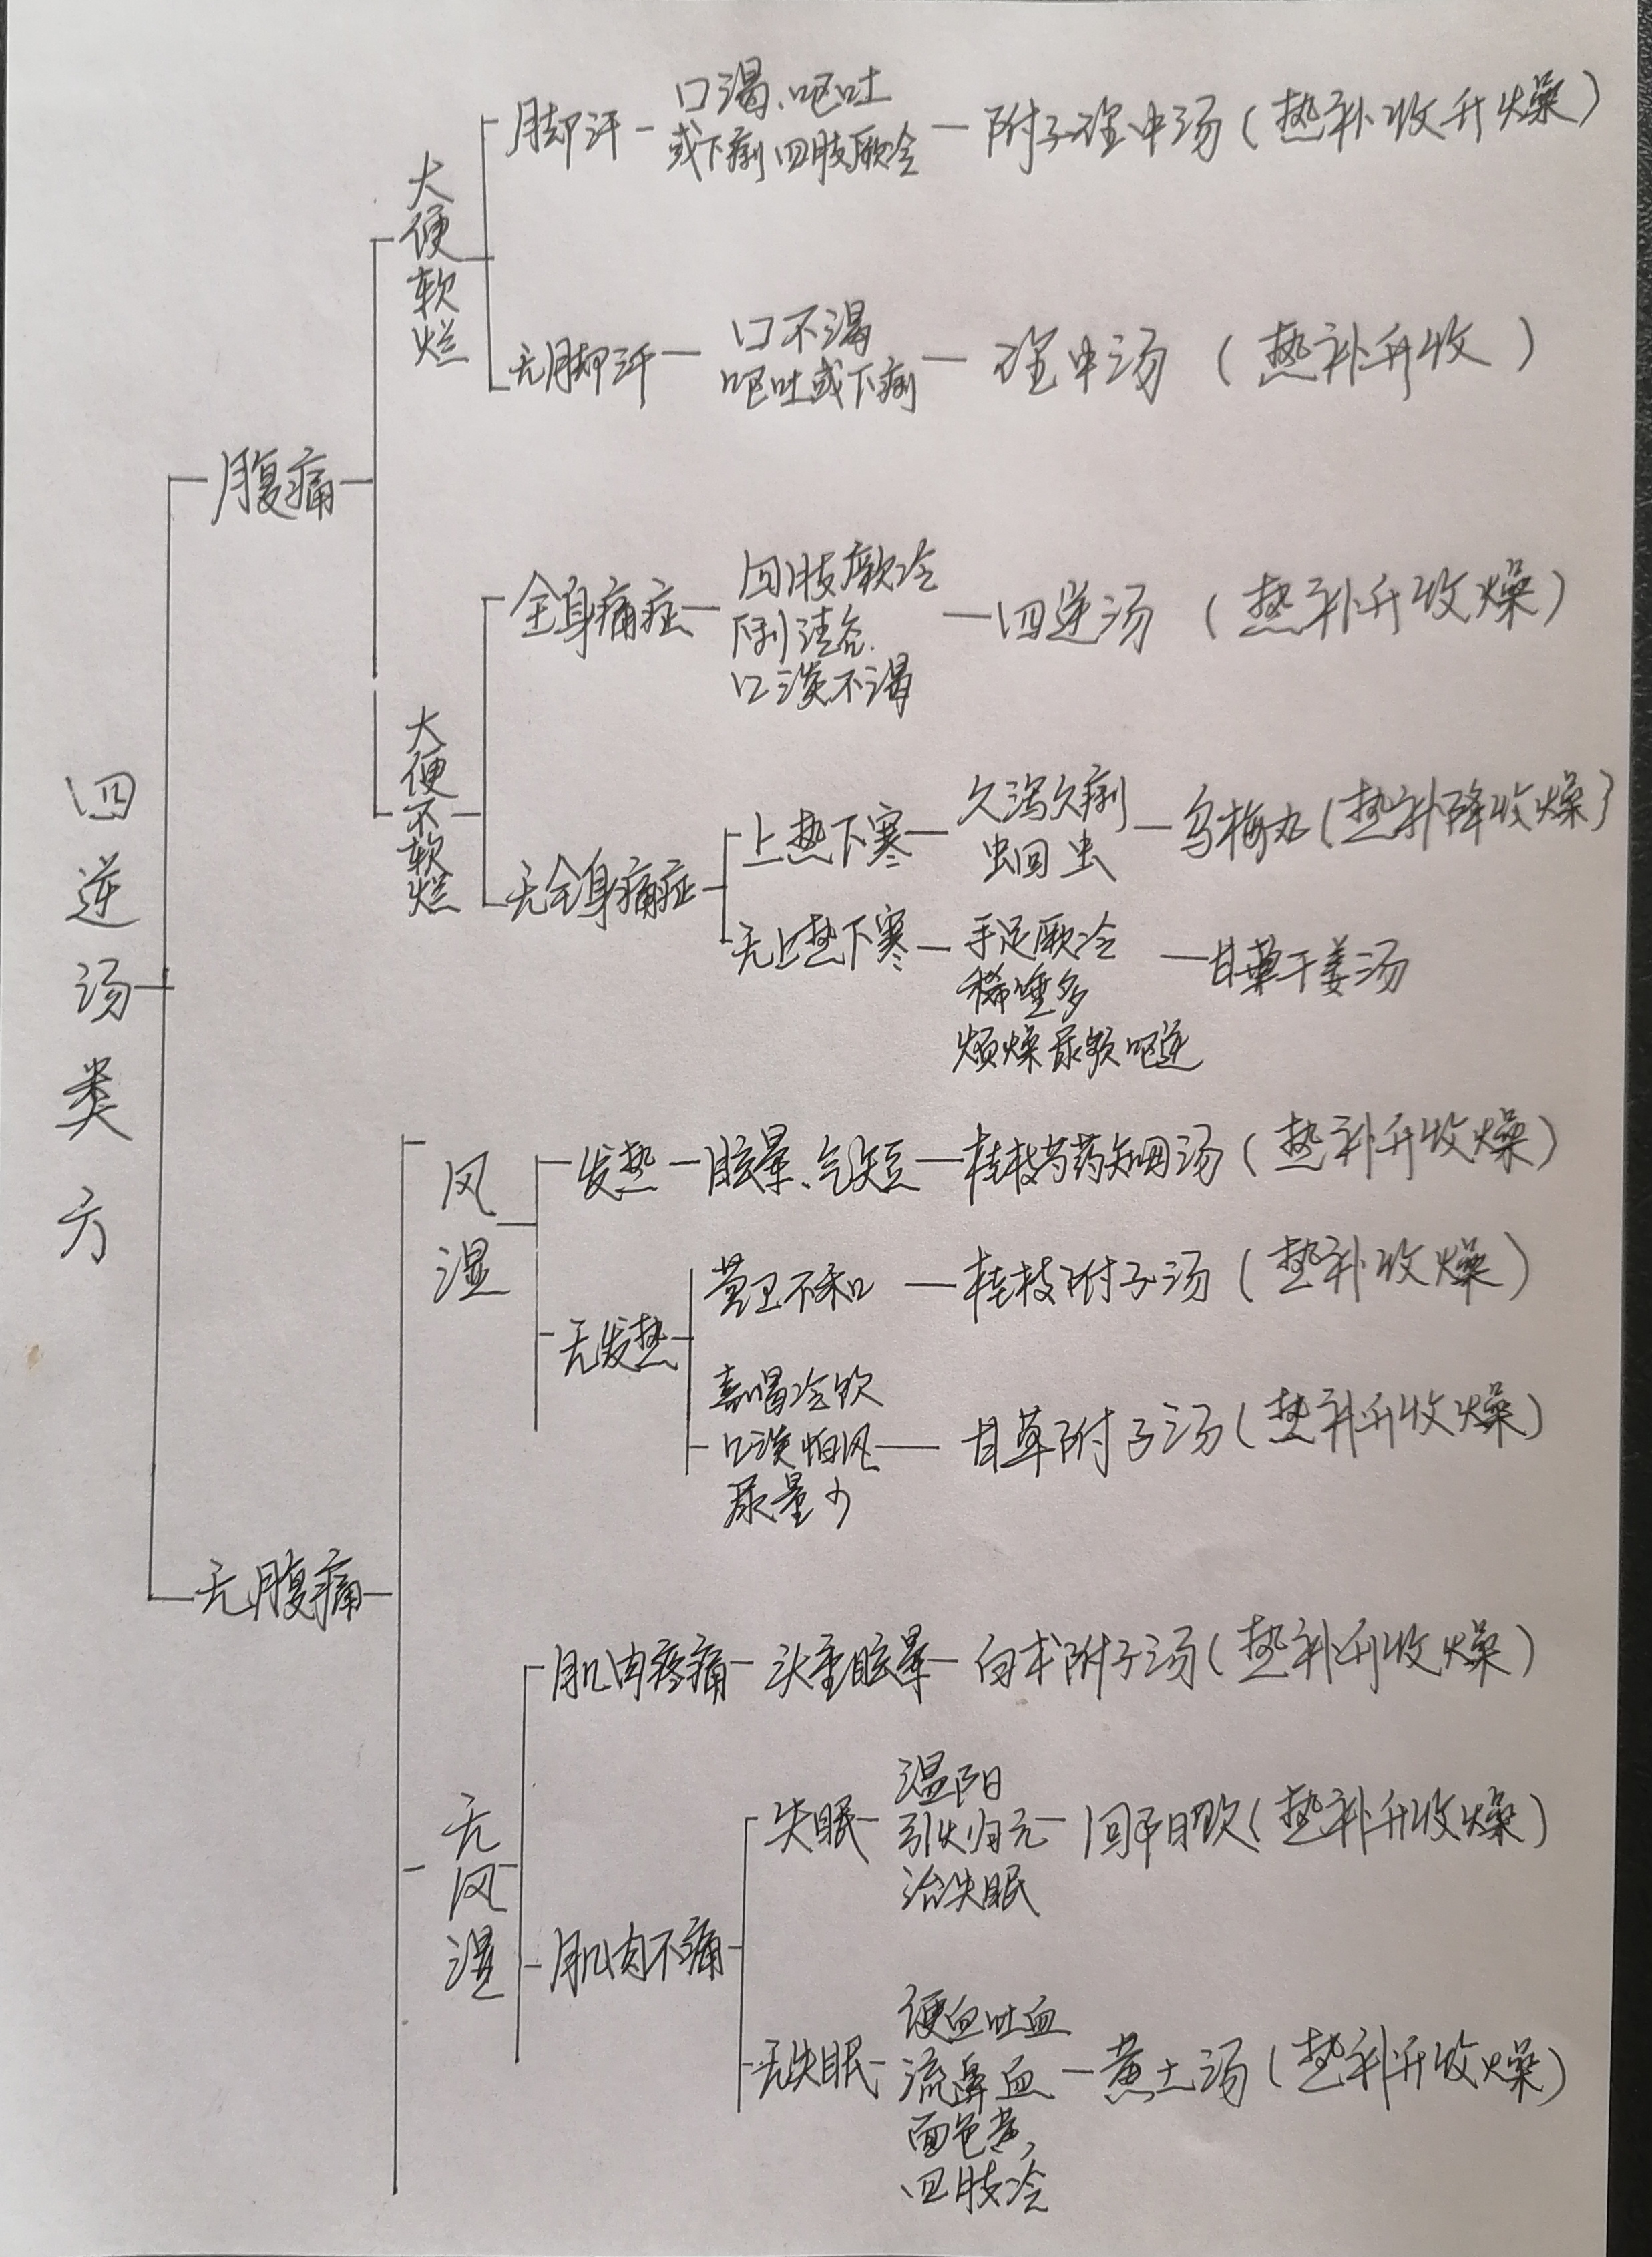 四逆汤类方
腹痛
大便软烂
脚汗
口渴、呕吐
或下痢 四肢厥冷
附子理中汤(热补收升燥)
无脚汗
口不渴
呕吐或下痢
理中汤 (热补升收)
大便不软烂
全身痛症
四肢厥冷
下利清谷.
口淡不渴
四逆汤 (热补升收燥)
无全身痛症
上热下寒
久泻久痢
蛔虫
乌梅丸(热补降收燥)
无上热下寒
手足厥冷
稀唾多
烦燥尿频呕逆
甘草干姜汤
无腹痛
风湿
发热
眩晕、气短
桂枝芍药知母汤(热补升收燥)
无发热
营卫不和
桂枝附子汤(热补收燥)
喜喝冷饮
口淡怕风
尿量少
甘草附子汤(热补升收燥)
无风湿
肌肉疼痛
头重眩晕
白术附子汤(热补升收燥)
肌肉不痛
失眠
温阳
引火归元
治失眠
回阳饮(热补升收燥)
无失眠
便血吐血
流鼻血
面色黄,
四肢冷
黄土汤(热补升收燥)